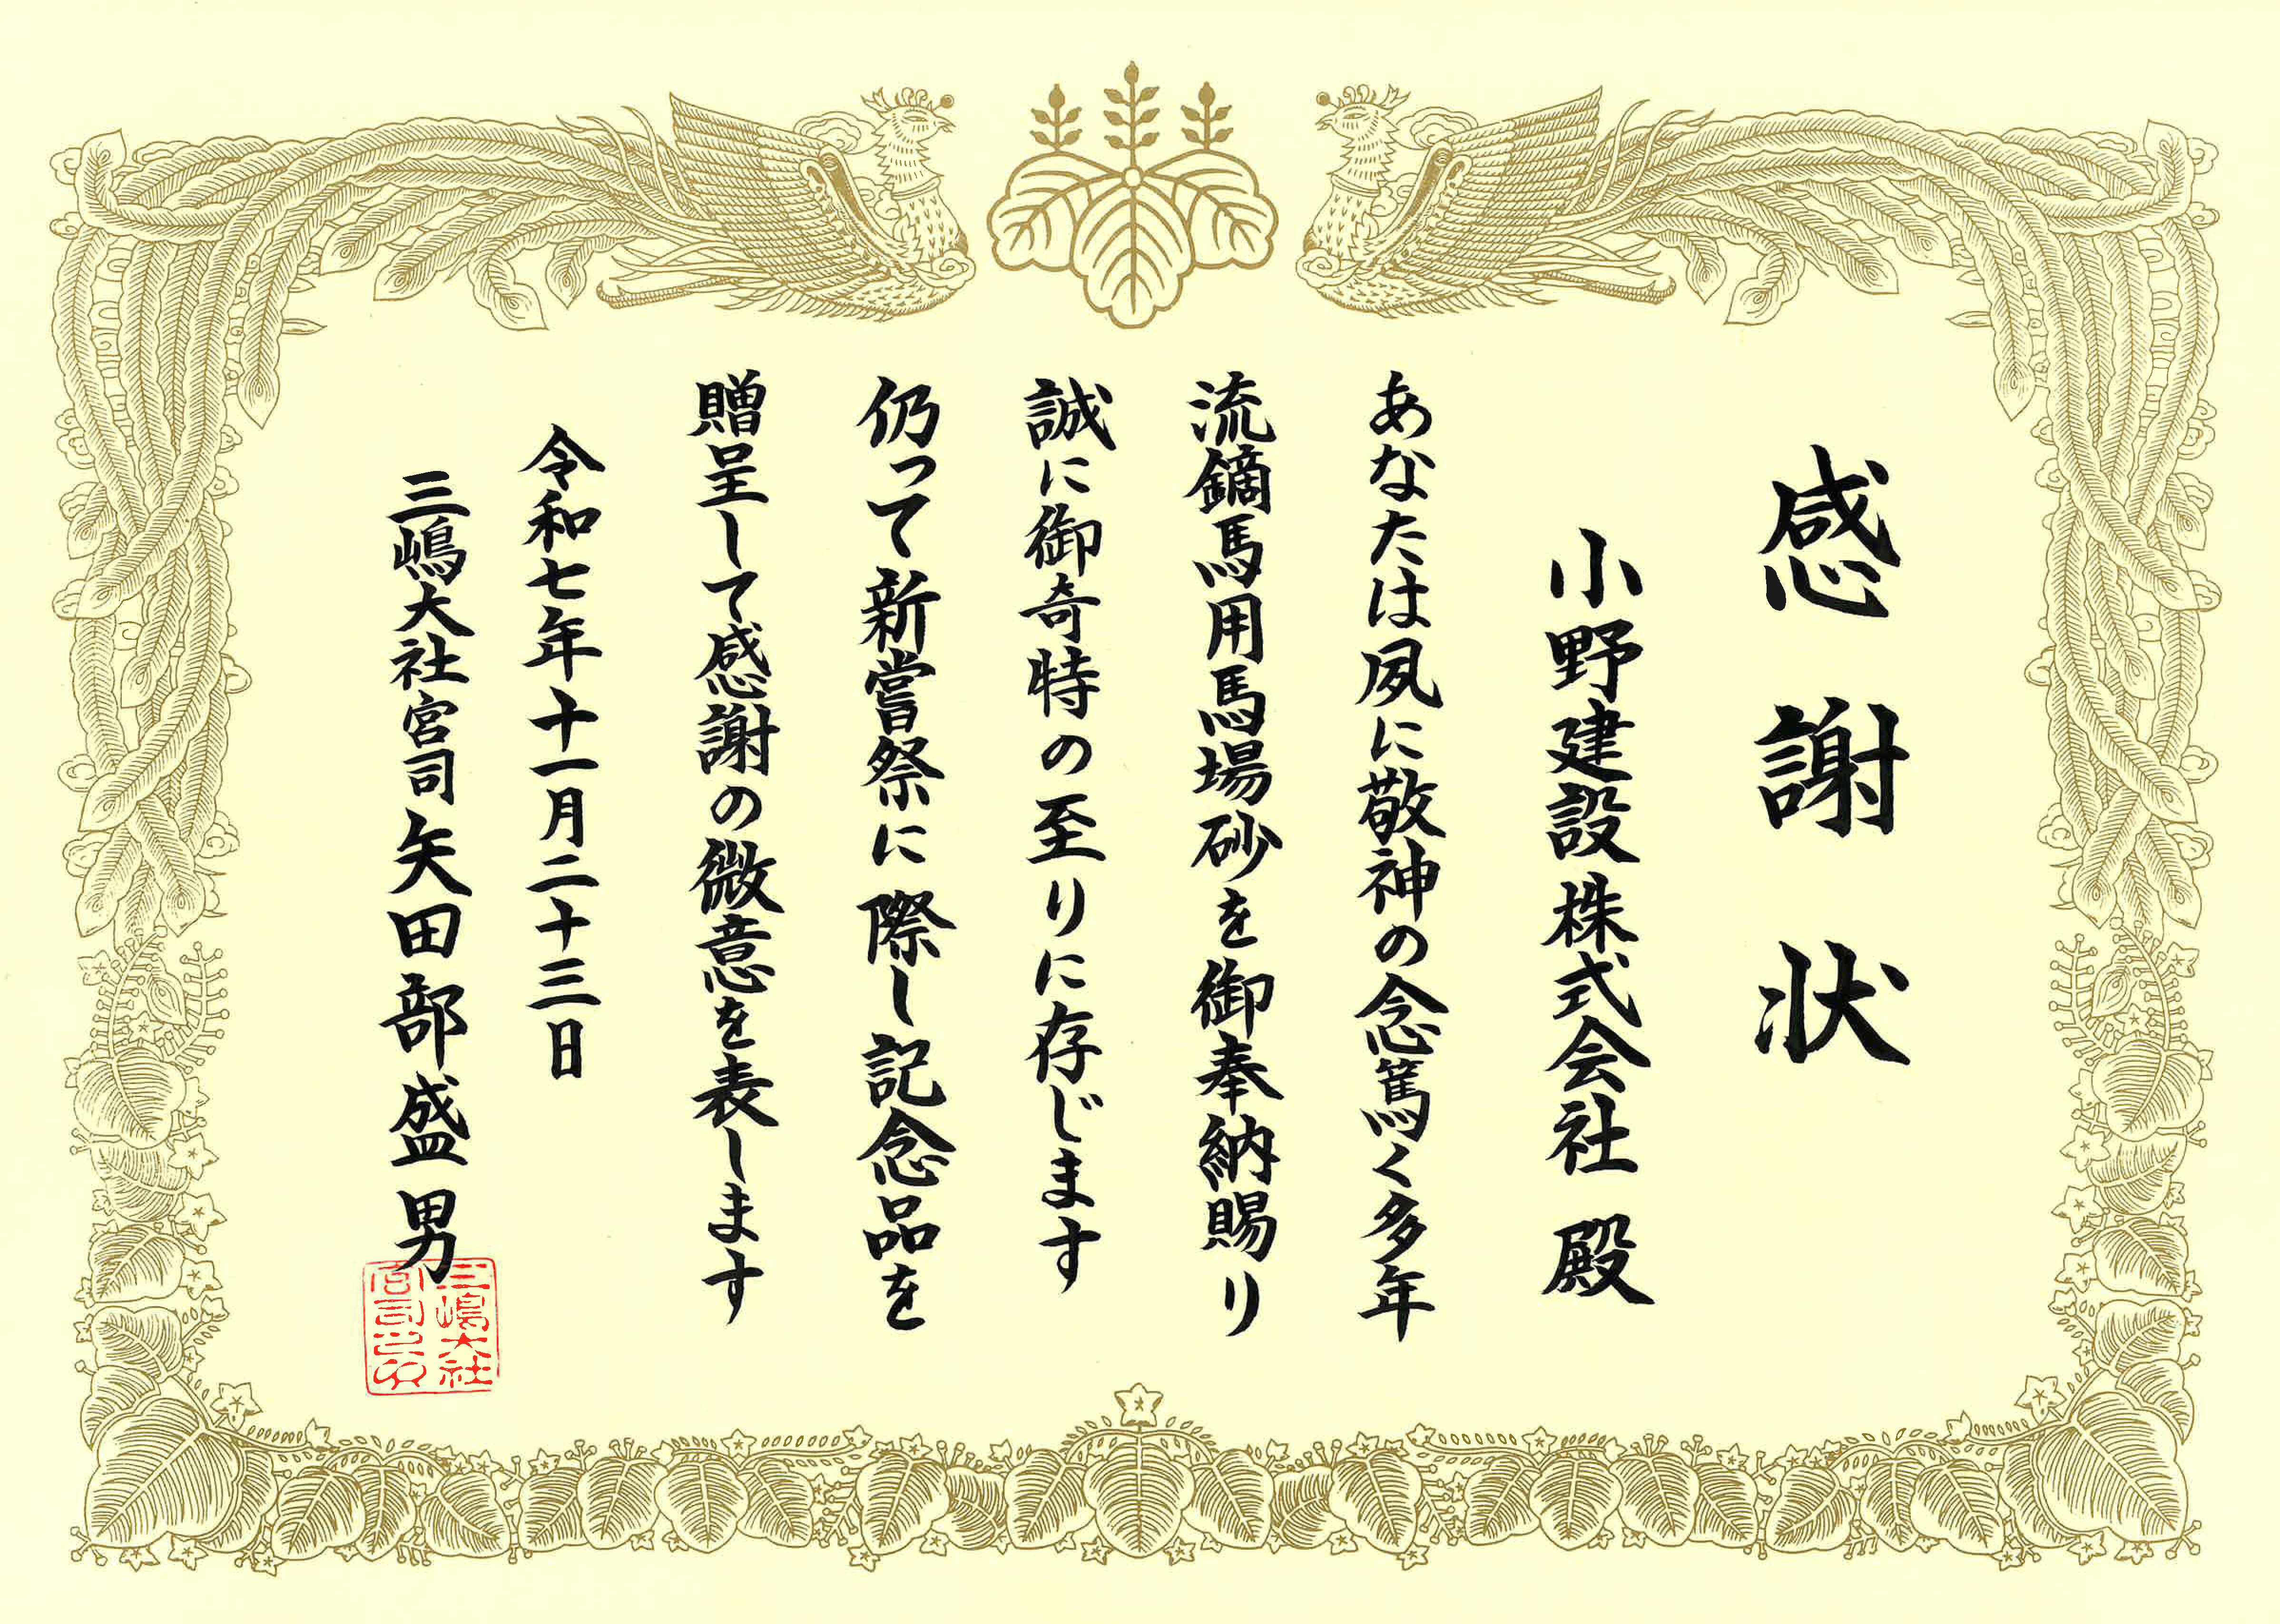 感謝状
小野建設株式会社 殿
あなたは夙に敬神の念篤く多年
流鏑馬用馬場砂を御奉納賜り
誠に御奇特の至りに存じます
仍って新嘗祭に際し記念品を
贈呈して感謝の微意を表します
令和七年十一月二十三日
三嶋大社宮司 矢田部盛男
三嶋大社
宮司之印